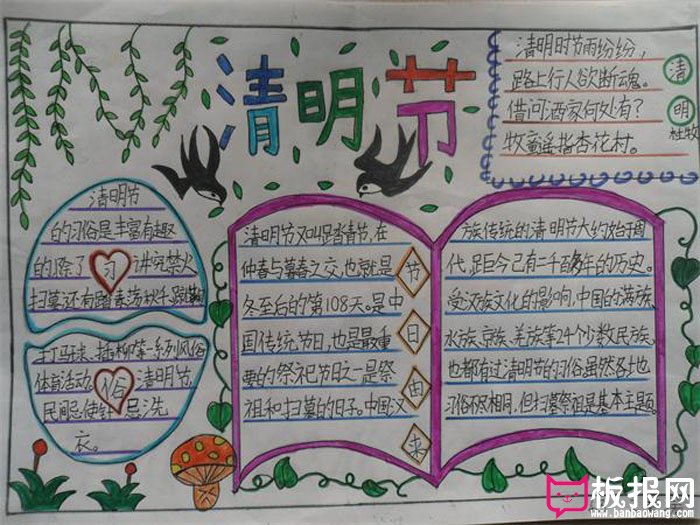 清明节
清明时节雨纷纷，
路上行人欲断魂。
借问酒家何处有？
牧童遥指杏花村。
清
明
杜牧
清明节
的习俗是丰富有趣
的，除了 习 讲究禁火
扫墓，还有踏青荡秋千、蹴鞠
打马球、插柳等一系列风俗
体育活动。 俗 清明节，
民间忌使针，忌洗
衣。
清明节又叫踏青节，在
仲春与暮春之交，也就是
冬至后的第108天。是中
国传统节日，也是最重
要的祭祀节日之一是祭
祖和扫墓的日子。中国汉
节
日
由
来
族传统的清明节大约始于周
代，距今已有二千百多年的历史。
受汉族文化的影响，中国的满族、
水族、京族、羌族等24个少数民族，
也都有过清明节的习俗。虽然各地
习俗不尽相同，但扫墓祭祖是基本主题。
板报网
www.banbaowang.com